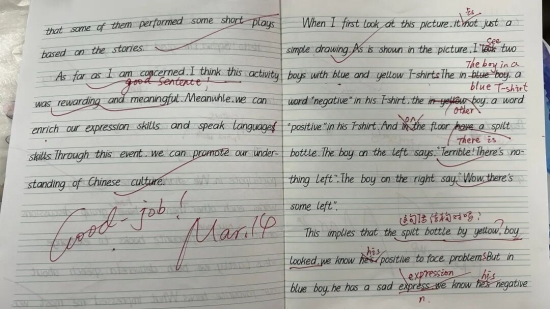 that some of them performed some short plays
based on the stories.
As far as I am concerned. I think this activity
good sentence!
was rewarding and meaningful. Meanwhile. we can
enrich our expression skills and speak language
skills. Through this event. we can promote our under-
standing of Chinese culture.
Good job!
Mar.14
When I first look at this picture. it not just a
is
simple drawing. As is shown in the picture. I look two
see
The boy in a
boys with blue and yellow T-shirts. The in blue boy. a
blue T-shirt
word "negative" in his T-shirt. the in yellow boy. a word
other
"positive" in his T-shirt. And in the floor have a spilt
on
There is
bottle. The boy on the left says. "Terrible! There's no-
thing left". The boy on the right say. "Wow. there's
some left".
这句话结构对吗?
This implies that the spilt bottle by yellow boy
looked. we know he's positive to face problems. But in
his
expression
blue boy. he has a sad express we know he's negative
his
n.